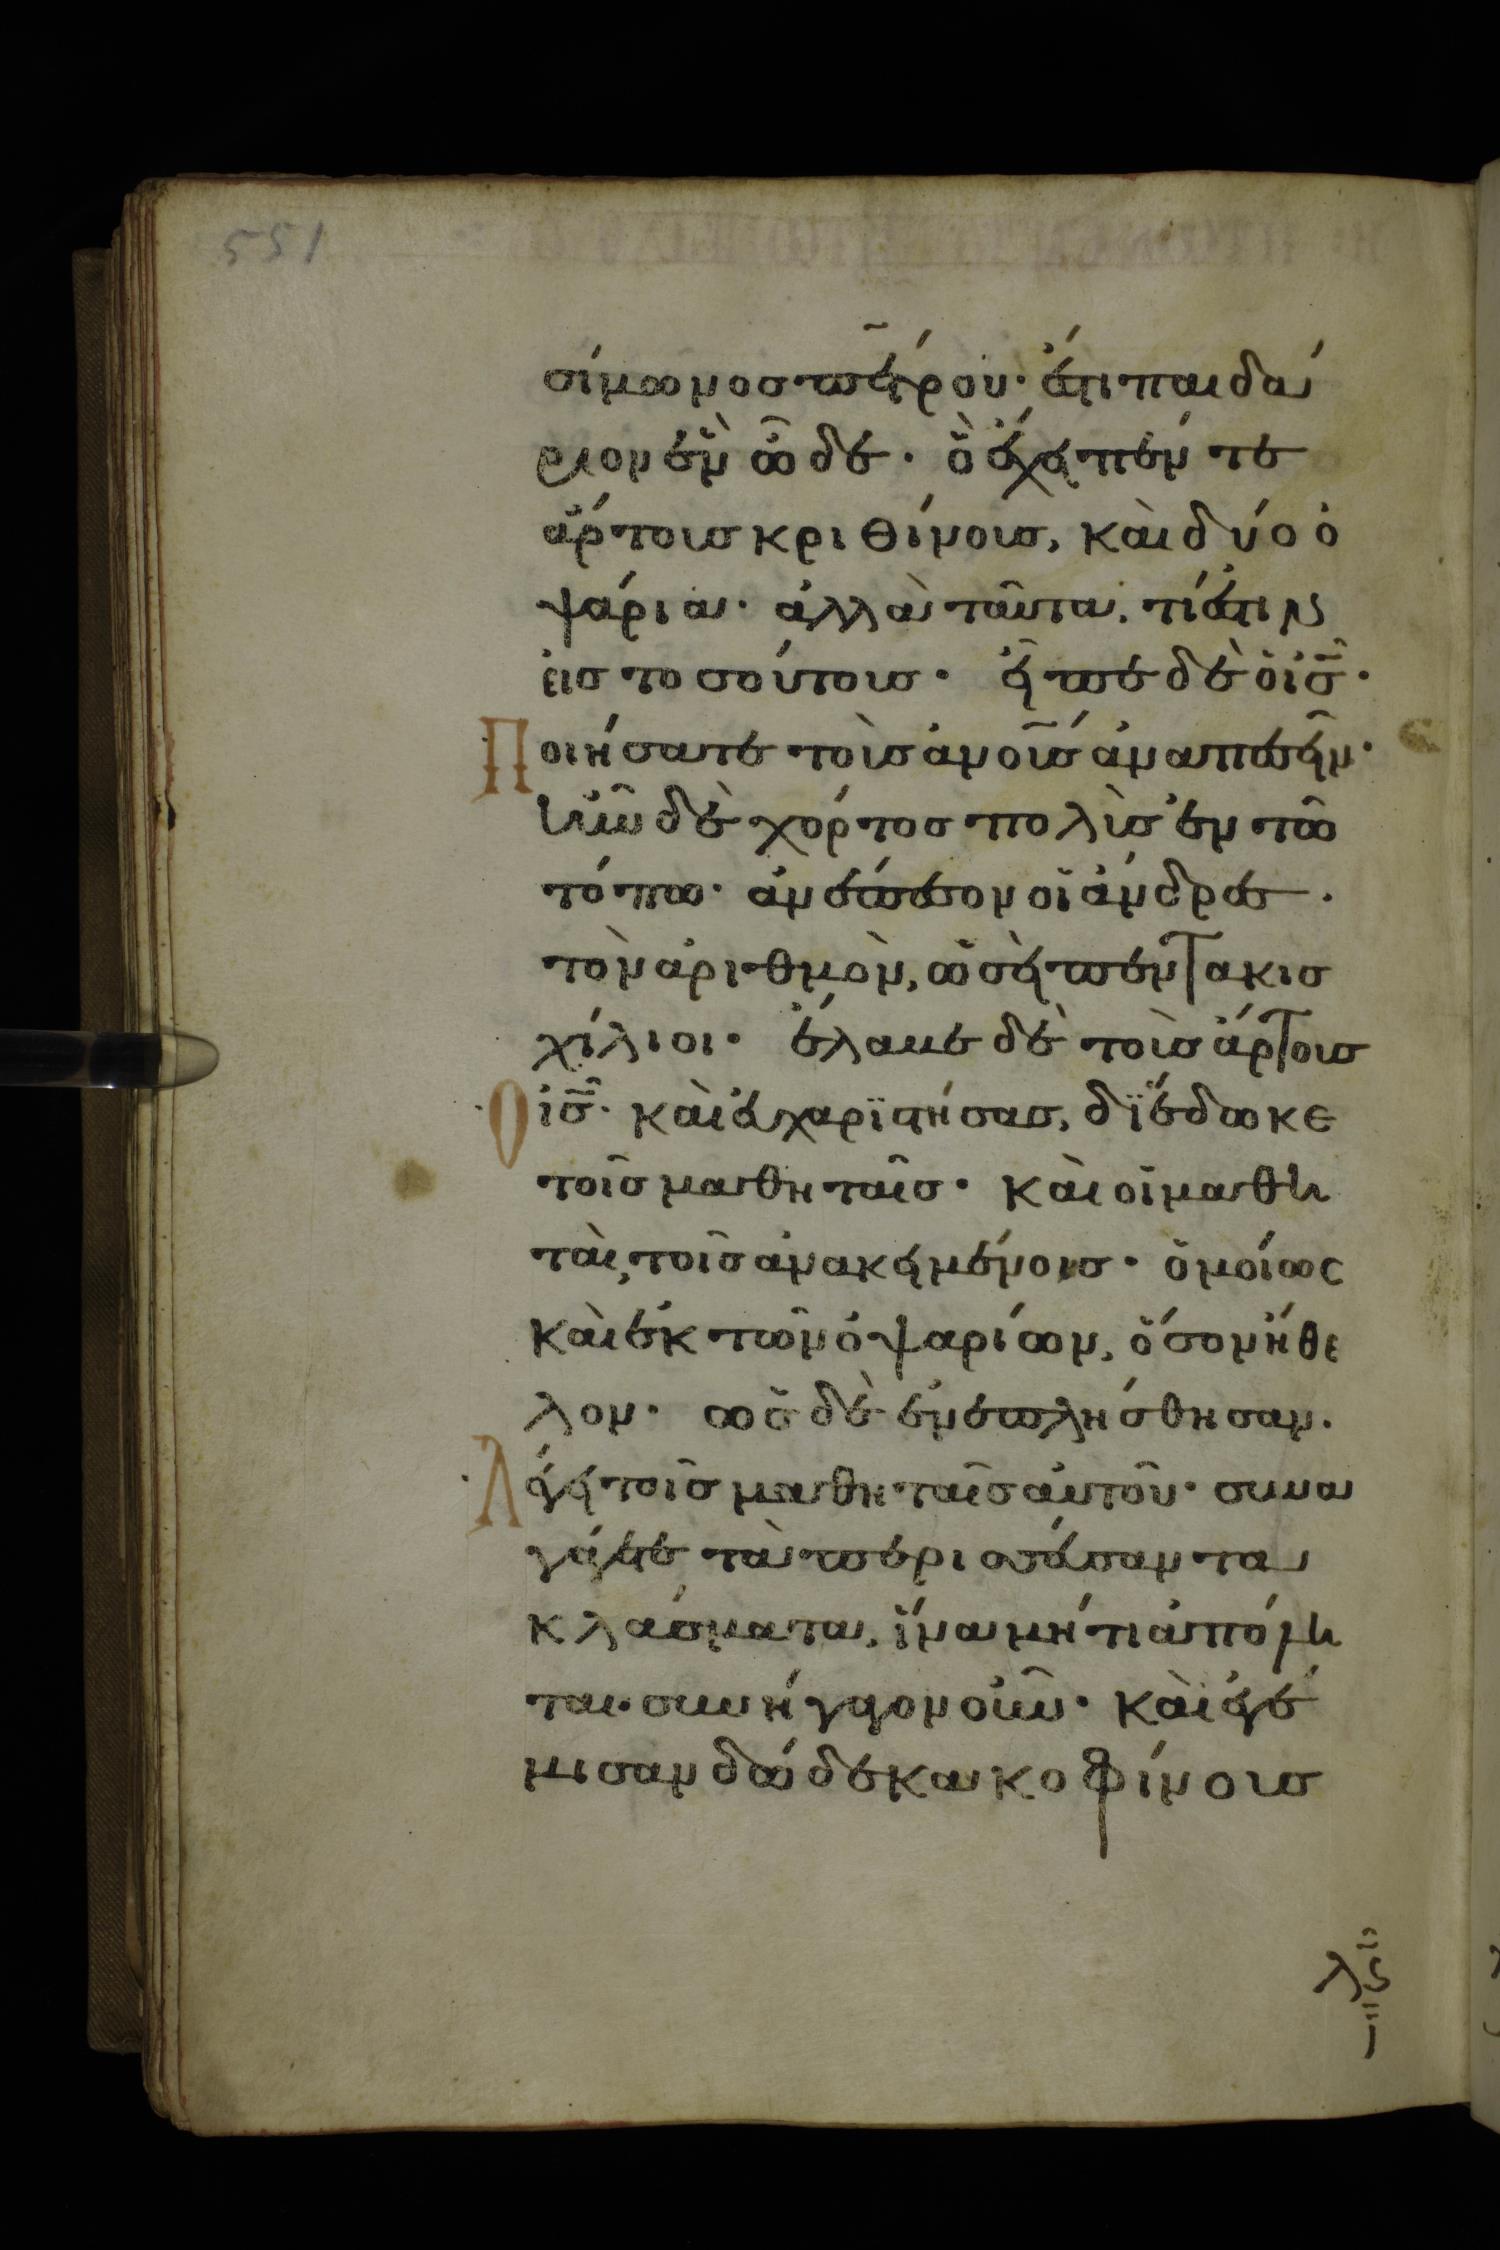 551
σίμωνος πέτρου· ἔστι παιδά
ριον ἓν ὧδε· ὃ ἔχει πέντε
ἄρτους κριθίνους, καὶ δύο ὀ
ψάρια· ἀλλὰ ταῦτα, τί ἐστιν
εἰς τοσούτους· εἶπε δὲ ὁ ἰς̅·
Ποιήσατε τοὺς ἀνο̅υς ἀναπεσεῖν·
ἦν δὲ χόρτος πολὺς ἐν τῶ
τόπω· ἀνέπεσον οἱ ἄνδρες·
τὸν ἀριθμὸν, ὡσεὶ πεντακισ
χίλιοι· ἔλαβε δὲ τοὺς ἄρτους
Ὁ ἰς̅· καὶ εὐχαριστήσας, διέδωκε
τοῖς μαθηταῖς· καὶ οἱ μαθη
ταὶ, τοῖς ἀνακειμένοις· ὁμοίως
καὶ ἐκ τῶν ὀψαρίων, ὅσον ἤθε
λον· ὡς δὲ ἐνεπλήσθησαν.
Λέγει τοῖς μαθηταῖς αὐτοῦ· συνα
γάγετε τὰ περισσεύσαντα
κλάσματα, ἵνα μή τι ἀπόλη
ται· συνήγαγον οὖν· καὶ ἐγέ
μισαν δώδεκα κοφίνους